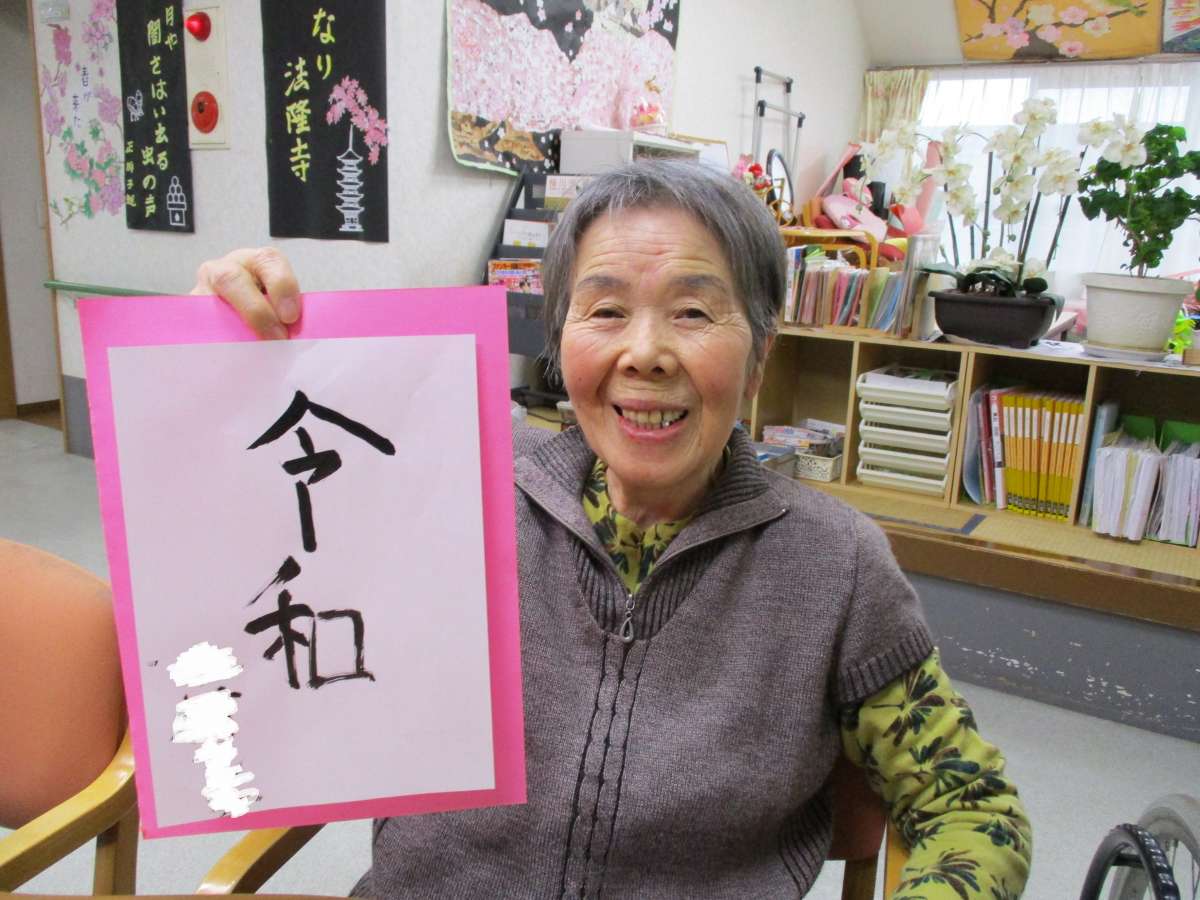 令和
なり
法隆寺
月や
闇さはい出る
虫の声
正岡子規
春が
来た